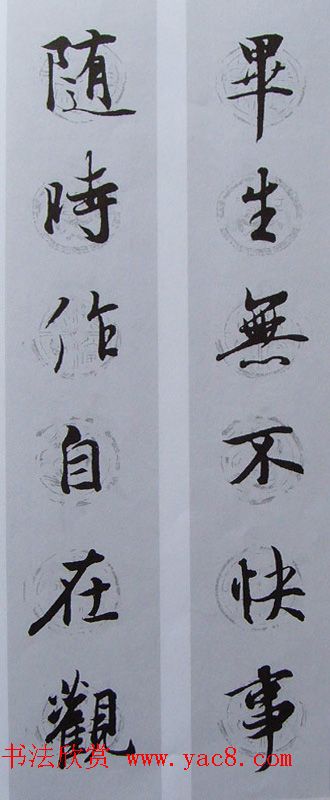 畢生無不快事
随時作自在觀
书法欣赏 www.yac8.com